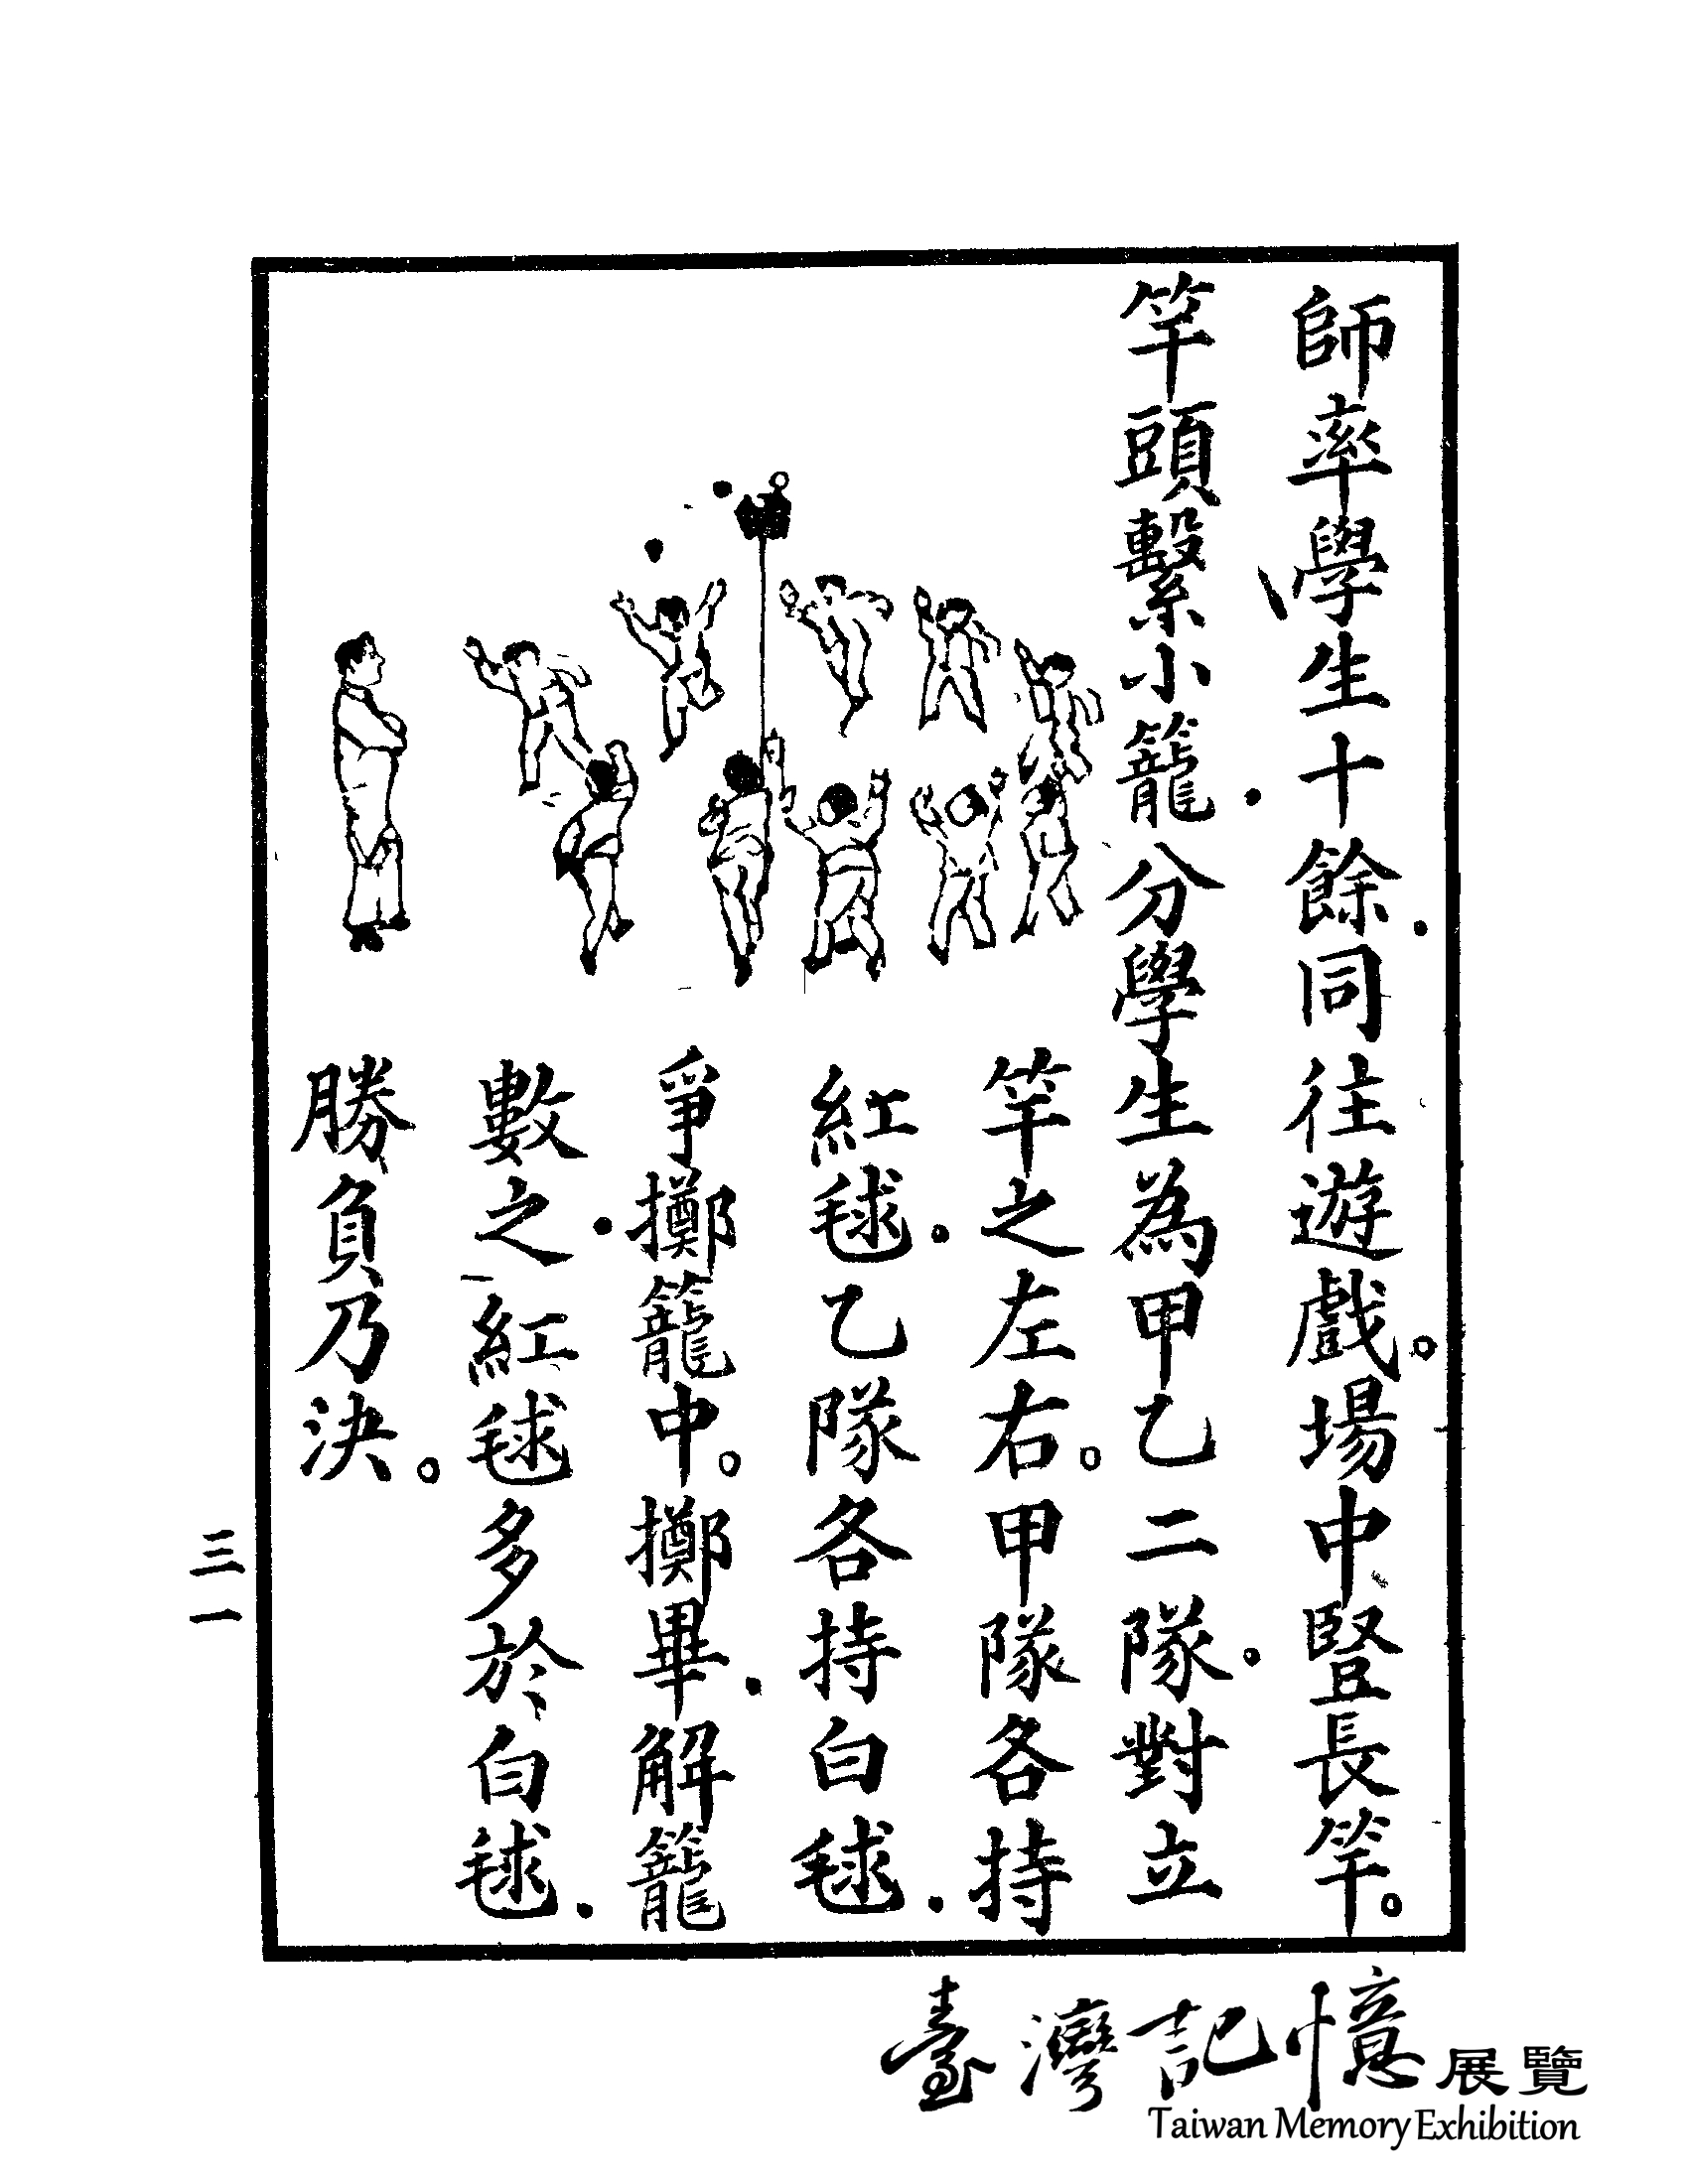 師率學生十餘.同往遊戲。場中豎長竿。
竿頭繫小籠.分學生為甲乙二隊.對立
竿之左右。甲隊各持
紅毬.乙隊各持白毬.
爭擲籠中。擲畢.解籠
數之.紅毬多於白毬.
勝負乃決。
三一
臺灣記憶展覽
Taiwan Memory Exhibition